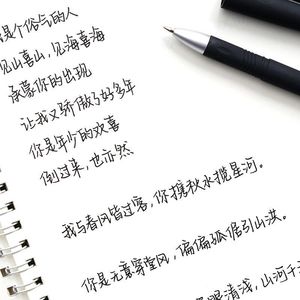 是个俗气的人
见山喜山，见海喜海
承蒙你的出现
让我又骄傲了好多年
你是年少的欢喜
倒过来，也亦然
我与春风皆过客，你携秋水揽星河。
你是无意穿堂风，偏偏孤倨引山洪。
眼清浅，山河千